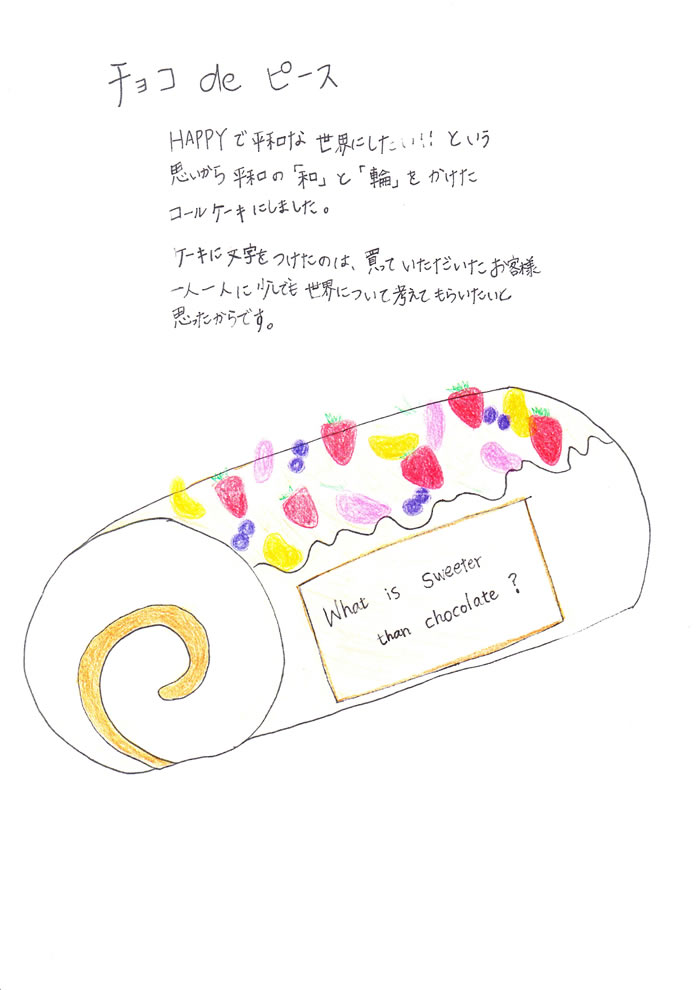 チョコ de ピース
HAPPYで平和な世界にしたい!! という
思いから平和の「和」と「輪」をかけた
コールケーキにしました。
ケーキに文字をつけたのは、買っていただいたお客様
一人一人に少しでも世界について考えてもらいたいと
思ったからです。
What is Sweeter
than chocolate ?